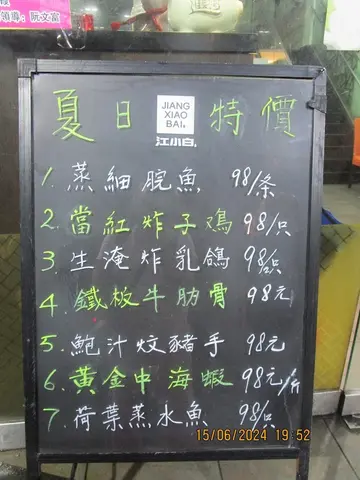 領導：阮文富
夏日 特價
JIANG
XIAO
BAI.
江小白
1. 蒸細脘魚 98/条
2. 當紅炸子鴂 98/只
3. 生淹炸乳鴿 98/只
4. 鐵板牛肋骨 98元
5. 鮑汁炆豬手 98元
6. 黃金中海蝦 98元/斤
7. 荷葉蒸水魚 98/只
15/06/2024 19:52